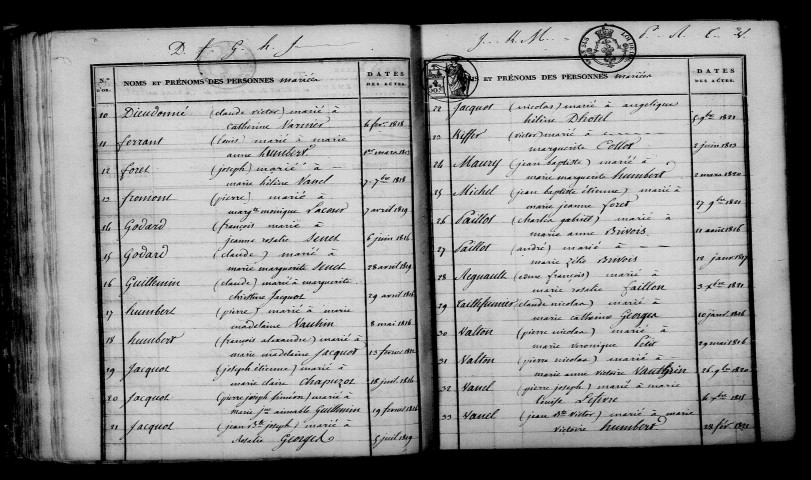 D. f. G. h. J.
N.os D'OR. NOMS ET PRÉNOMS DES PERSONNES mariées DATES DES ACTES.
10 Dieudonné (claude victor) marié à
catherine Varnier 6 fev. 1818
11 ferrant (louis) marié à marie
anne humbert 1er mars 1813
12 foret (joseph) marié à —
marie hélène Vauel 7 7bre 1818
13 fromont (pierre) marié à
margte monique Lacour 7 avril 1819
14 Godard (françois) marié à
jeanne rosalie Senet 6 juin 1816
15 Godard (claude) marié à
marie marguerite Senet 28 avril 1819
16 Guillemin (claude) marié à marguerite
christine Jacquot 29 avril 1816
17 humbert (pierre) marié à
madelaine Vautrin 8 mai 1816
18 humbert (françois alexandre) marié à
marie madelaine Jacquot 13 février
19 Jacquot (joseph étienne) marié à
marie claire Chapuzot 18 juil. 1816
20 Jacquot (pierre joseph siméon) marié à
marie jne aimable Guillemin 19 février
21 Jacquot (jean Bte joseph) marié à
Rosalie Georges 5 juil 1819
J. K. M. P. R. T. V.
ET PRÉNOMS DES PERSONNES mariées DATES DES ACTES.
22 Jacquot (nicolas) marié à angélique
hélène Dhotel 5 9bre 1821
23 Kiffer (victor) marié à
marguerite Collot 2 juin 1813
24 Maury (jean baptiste) marié à
marie marguerite humbert 2 mars 1820
25 Michel (jean baptiste étienne) marié à
marie jeanne foret 27 9bre 1821
26 Paillot (Martin gabriel) marié à
marie anne Brivois 11 août 1816
27 Paillot (andré) marié à
marie Brivois janv 1817
28 Regnault (françois) marié à
marie rosalie faillon 3 Xbre 1821
29 (claude nicolas) marié à
marie catherine Georges 10 janv 1816
30 Valton (pierre nicolas) marié à
marie véronique petit 29 mai 1816
31 Valton (pierre nicolas) marié à
marie anne victoire Vauthrin 26 9bre 1820
32 Vauel (pierre joseph) marié à
Louise Lefevre 6 Xbre 1815
33 Vauel (jean Bte victor) marié à marie
victoire humbert 28 fév. 1821